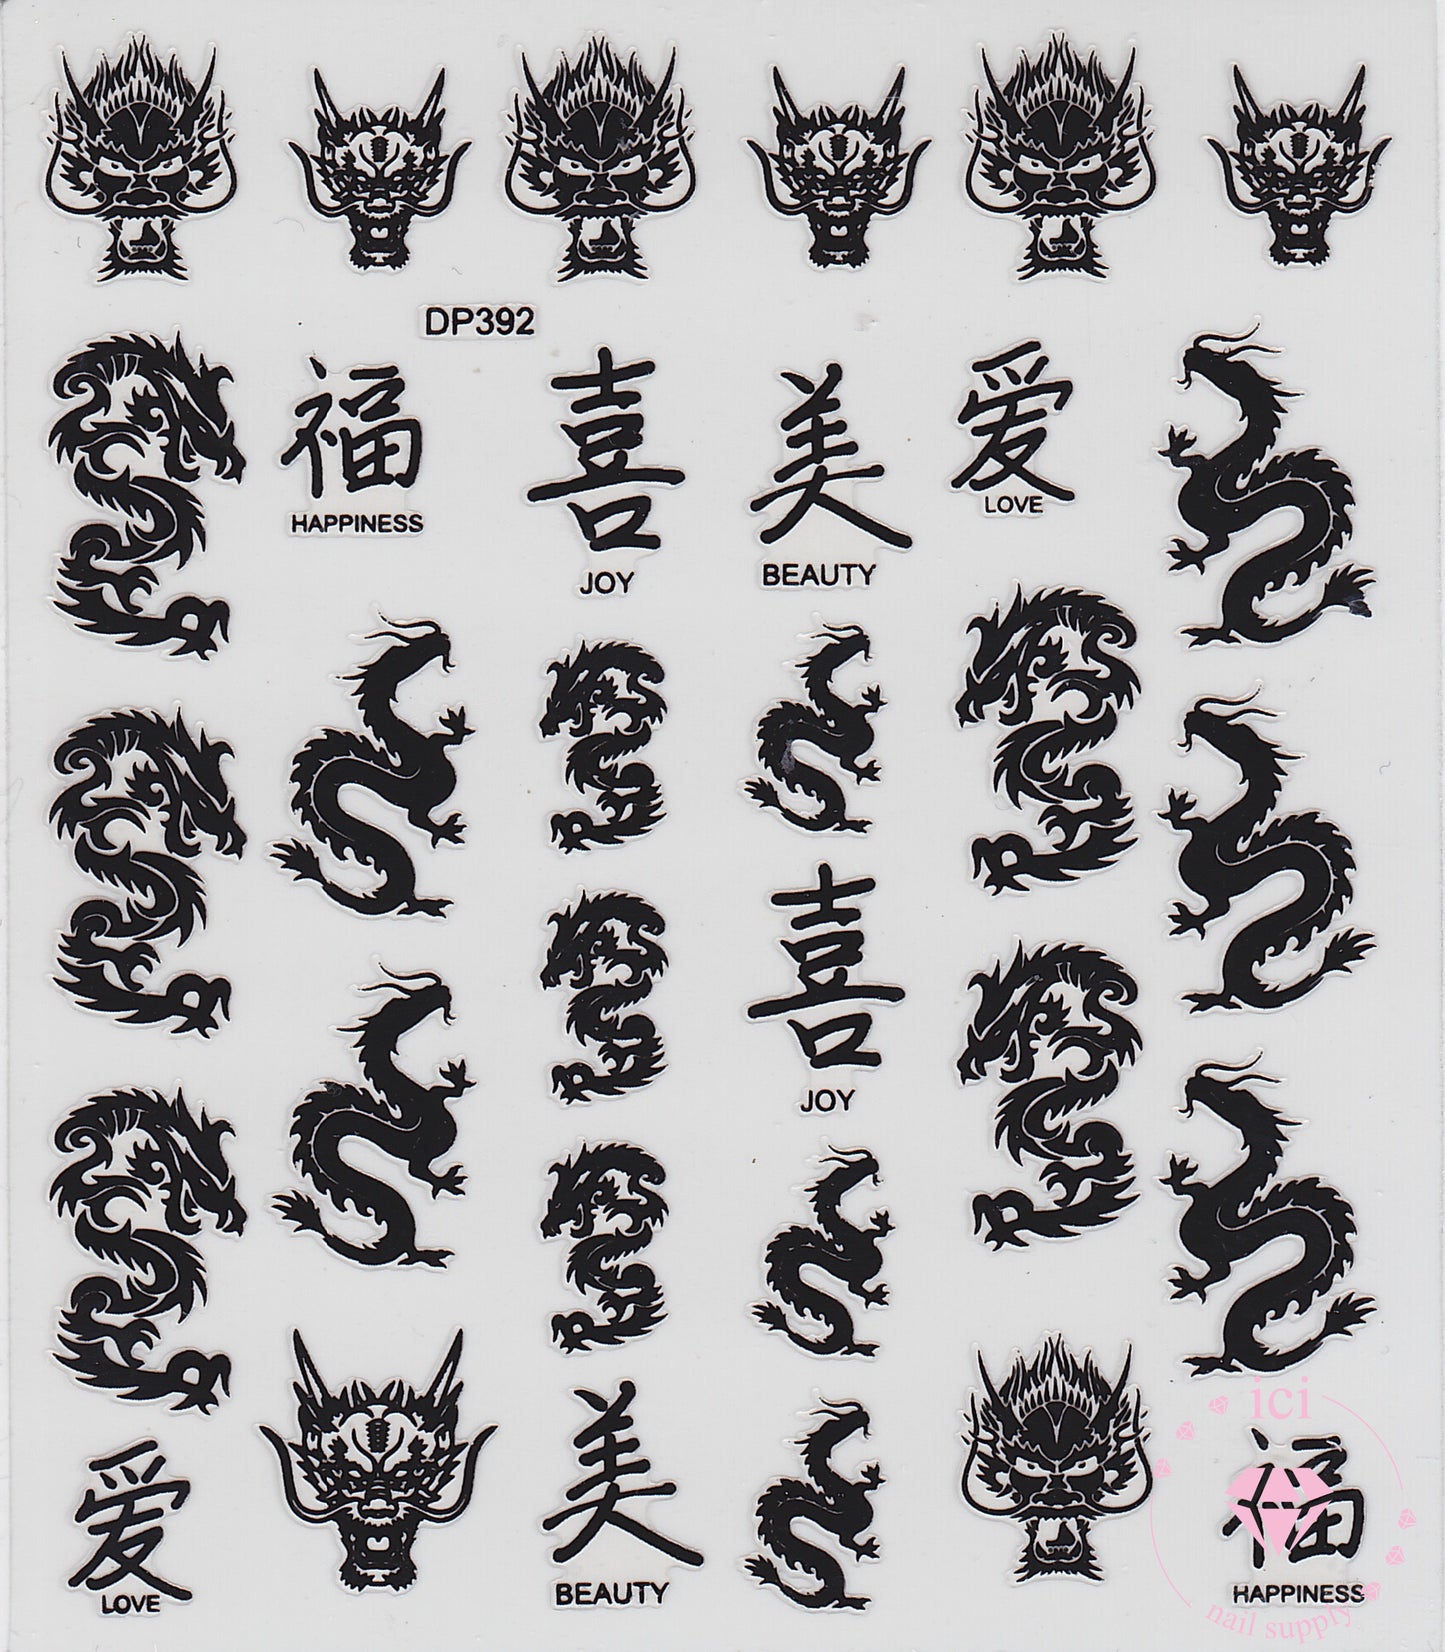 DP392
福
HAPPINESS
喜
JOY
美
BEAUTY
爱
LOVE
喜
JOY
爱
LOVE
美
BEAUTY
福
HAPPINESS
ici
nail supply